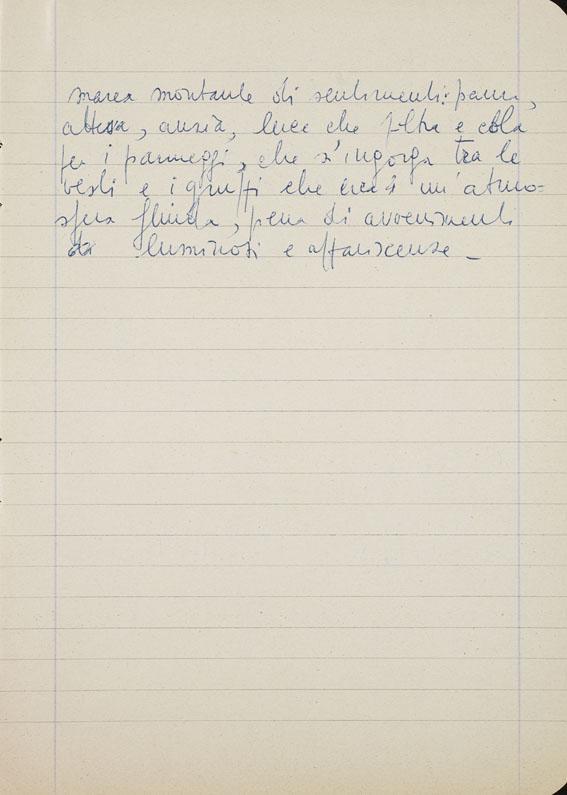 marea montante di sentimenti: paura,
attesa, ansia, luce che filtra e cola
per i panneggi, che s'ingorga tra le
vesti e i gruppi che crea un'atmo-
sfera fluida, piena di avvenimenti
luminosi e